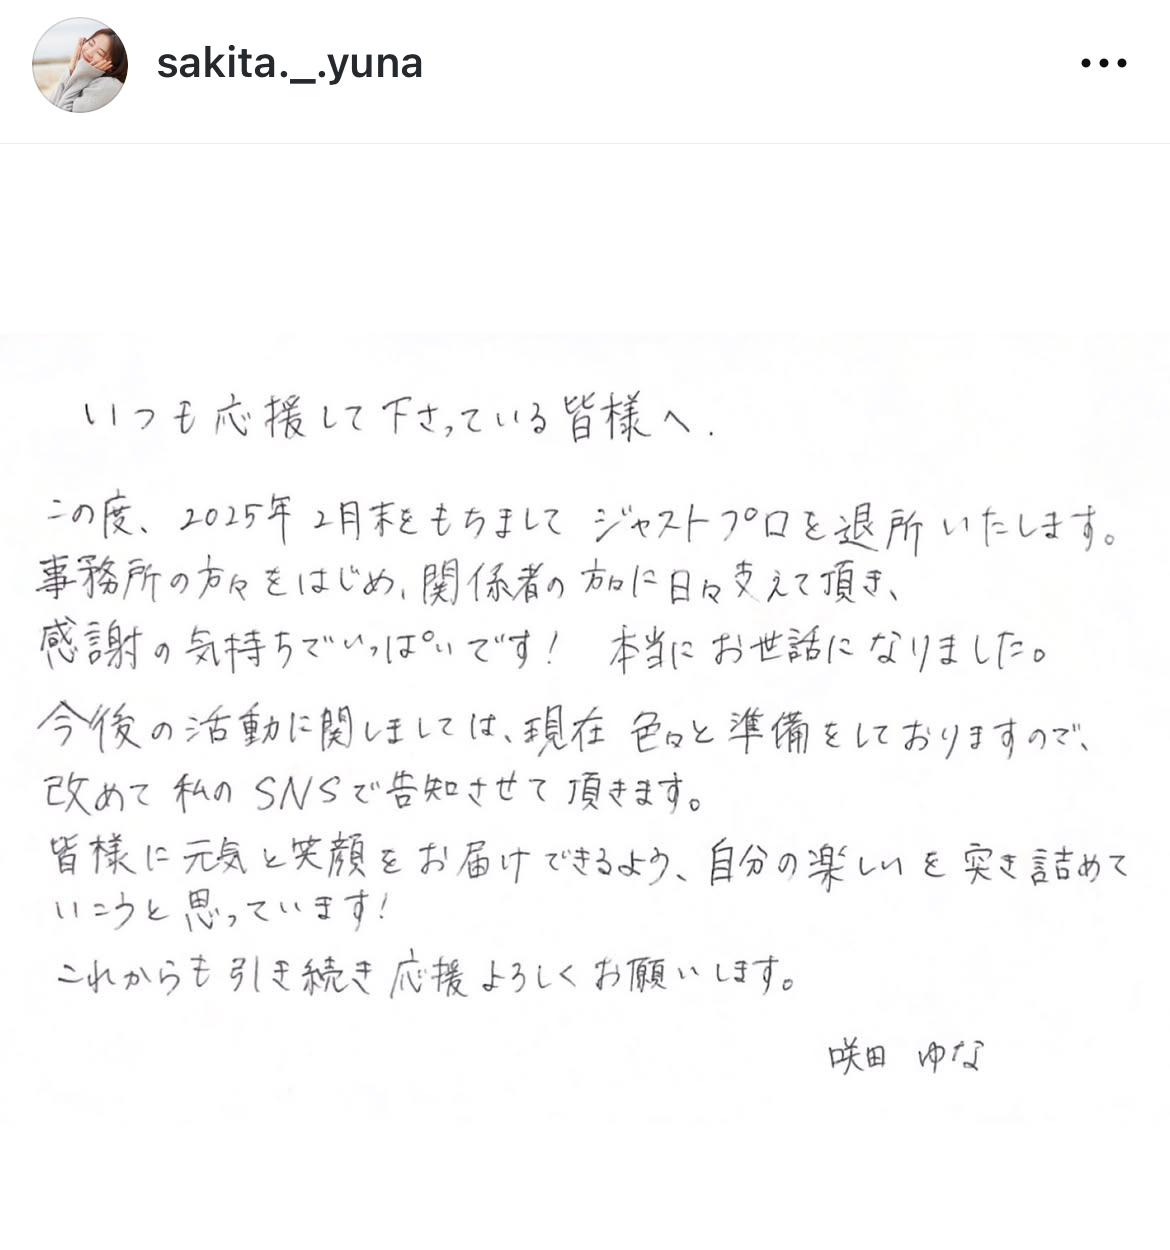 sakita._.yuna
いつも応援して下さっている皆様へ.
この度、2025年2月末をもちまして ジャストプロを退所いたします。
事務所の方々をはじめ、関係者の方々に日々支えて頂き、
感謝の気持ちでいっぱいです! 本当にお世話になりました。
今後の活動に関しましては、現在 色々と準備をしておりますので、
改めて私のSNSで告知させて頂きます。
皆様に元気と笑顔をお届けできるよう、自分の楽しいを突き詰めて
いこうと思っています!
これからも引き続き応援よろしくお願いします。
咲田 ゆな